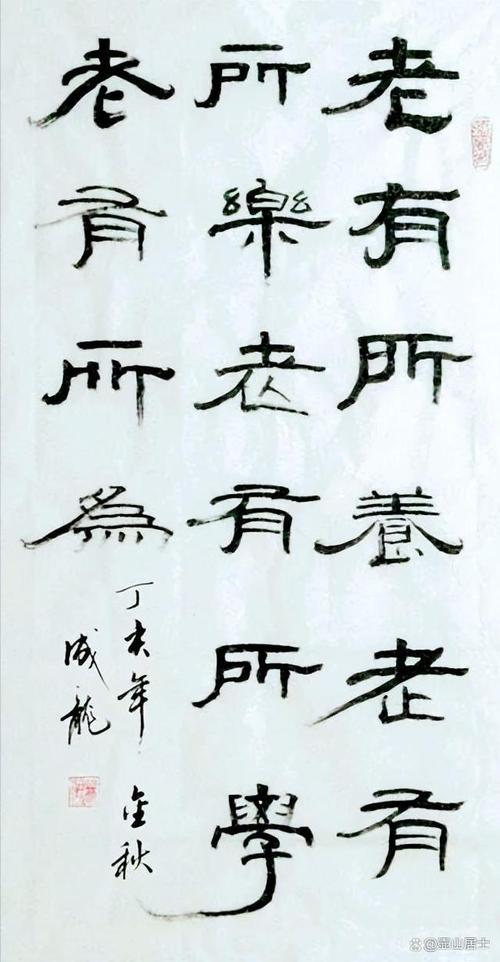 老有所養老有
所樂老有所學
老有所為
丁亥年 金秋
成龍
壶山居士